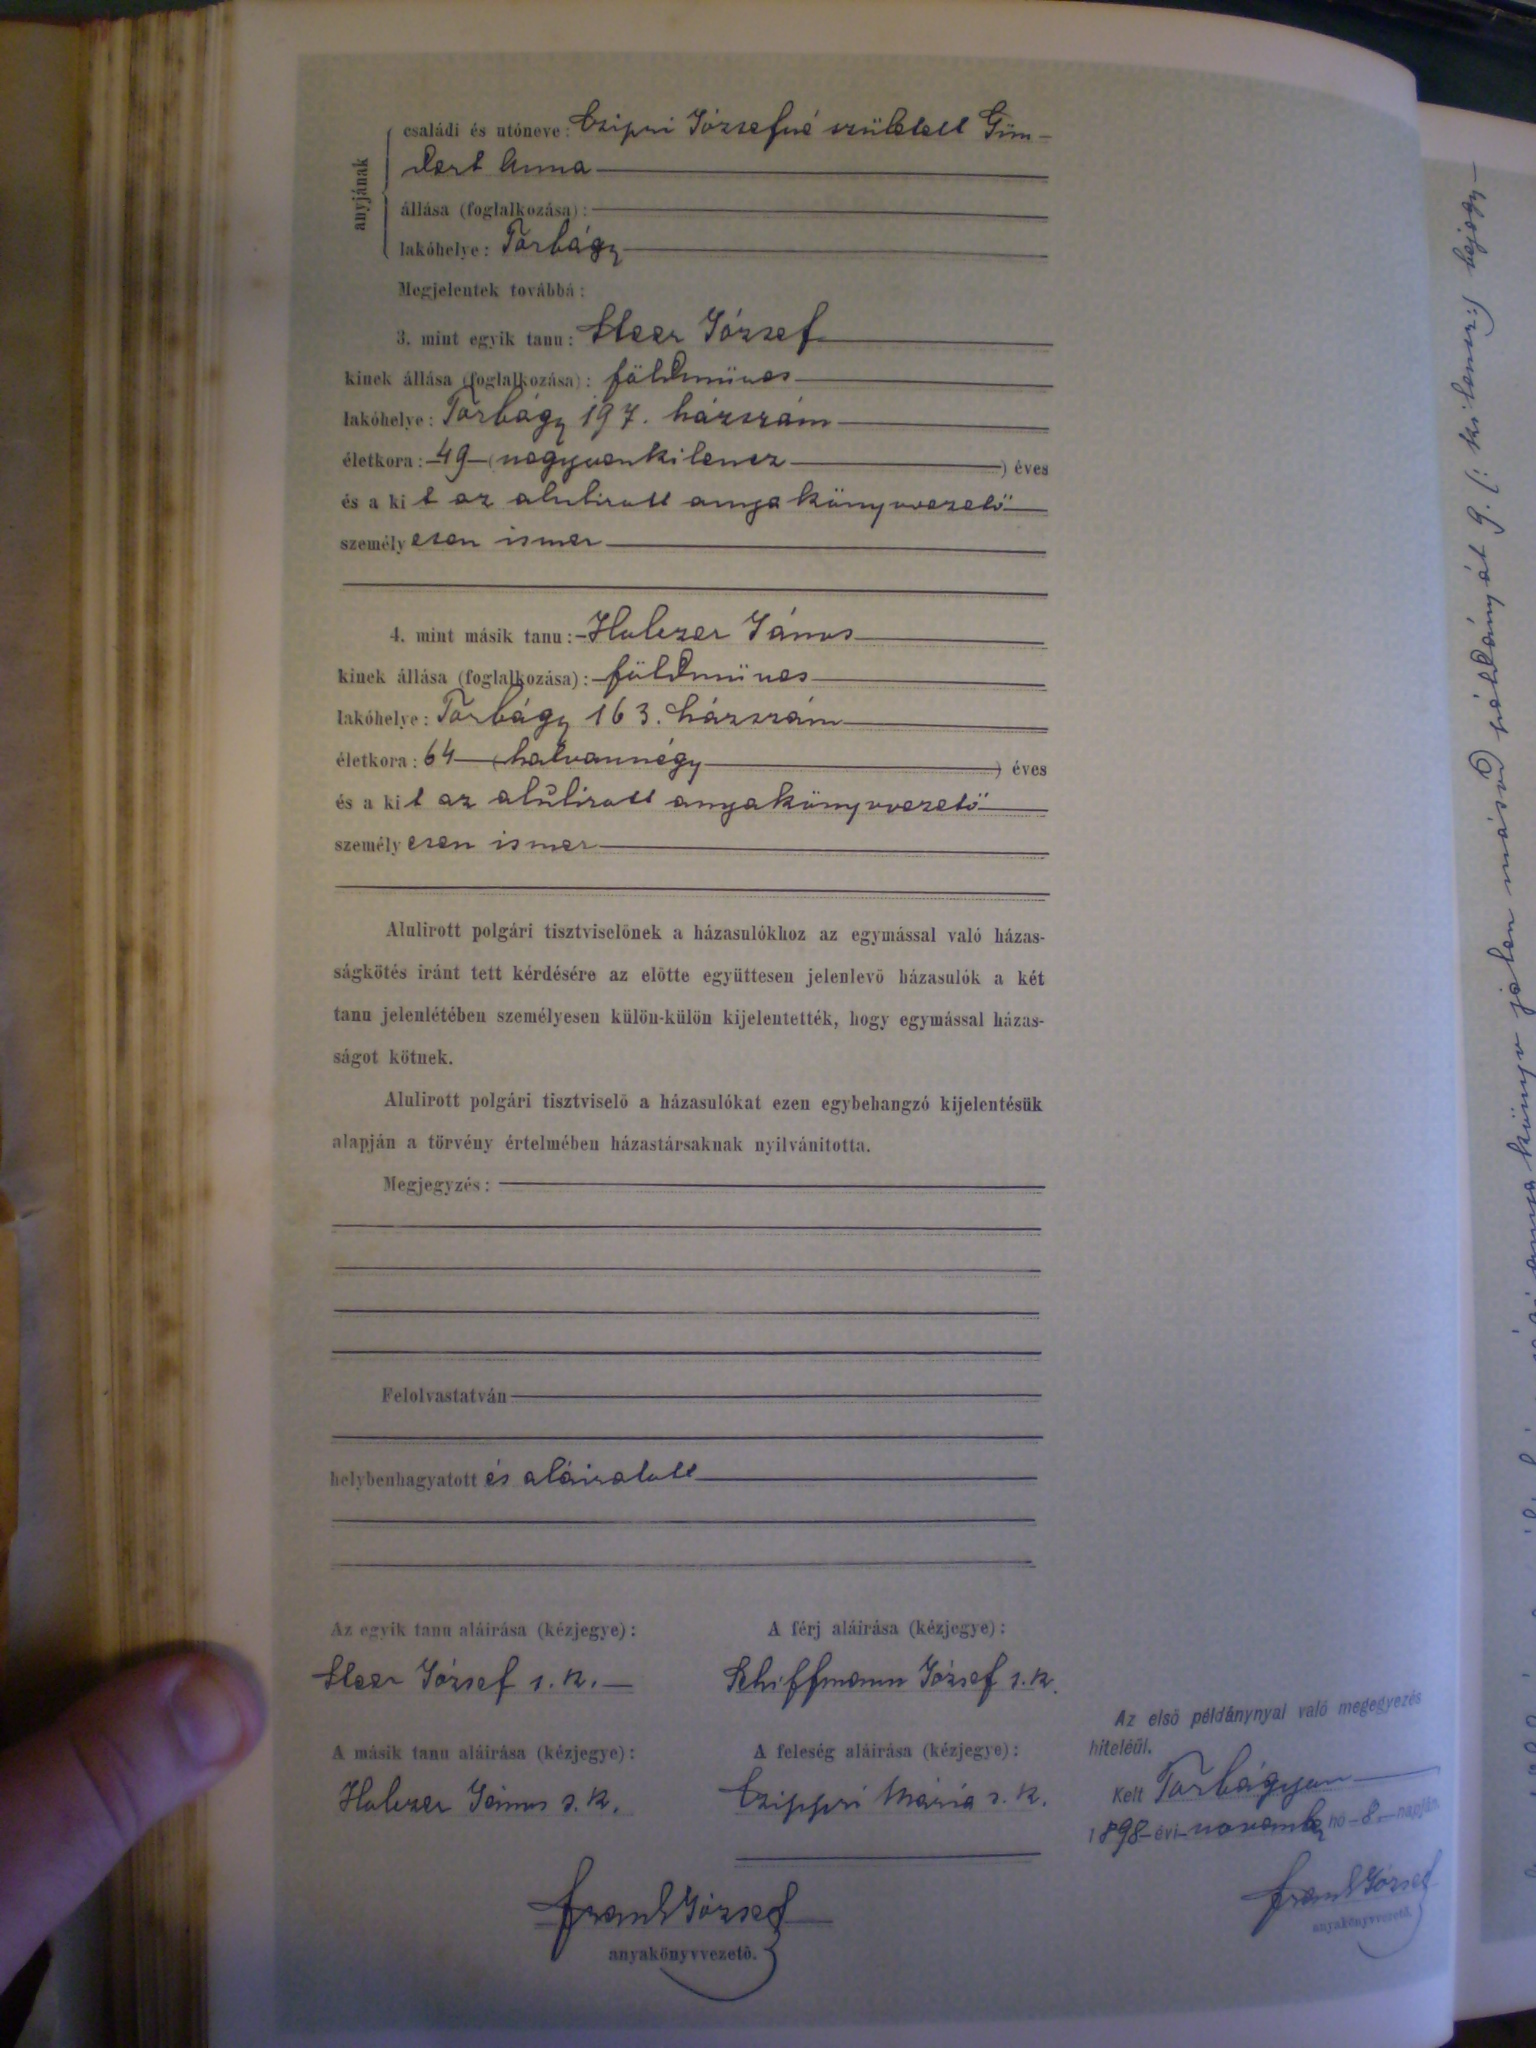 anyjának
családi és utóneve: Czippri Józsefné született Gün-
dert Anna
állása (foglalkozása):
lakóhelye: Torbágy
Megjelentek továbbá:
3. mint egyik tanu: Steer József
kinek állása (foglalkozása): földmüves
lakóhelye: Torbágy 197. házszám
életkora: 49 (negyvenkilencz) éves
és a kit az alulirott anyakönyvvezető
személyesen ismer
4. mint másik tanu: Holczer János
kinek állása (foglalkozása): földmüves
lakóhelye: Torbágy 163. házszám
életkora: 64 (hatvannégy) éves
és a kit az alulirott anyakönyvvezető
személyesen ismer
Alulirott polgári tisztviselőnek a házasulókhoz az egymással való házas-
ságkötés iránt tett kérdésére az előtte együttesen jelenlevő házasulók a két
tanu jelenlétében személyesen külön-külön kijelentették, hogy egymással házas-
ságot kötnek.
Alulirott polgári tisztviselő a házasulókat ezen egybehangzó kijelentésük
alapján a törvény értelmében házastársaknak nyilvánitotta.
Megjegyzés:
Felolvastatván
helybenhagyatott és aláiratott
Az egyik tanu aláirása (kézjegye):
Steer József s. k.
A férj aláirása (kézjegye):
Schiffmann József s. k.
A másik tanu aláirása (kézjegye):
Holczer János s. k.
A feleség aláirása (kézjegye):
Czippri Mária s. k.
Frank József
anyakönyvvezető.
Az első példánynyal való megegyezés
hiteléül.
Kelt Torbágyon
1898 évi november hó 8. napján.
Frank József
anyakönyvvezető.
könyv jelen másod példányát 9. (: kilencz :) bejegy-